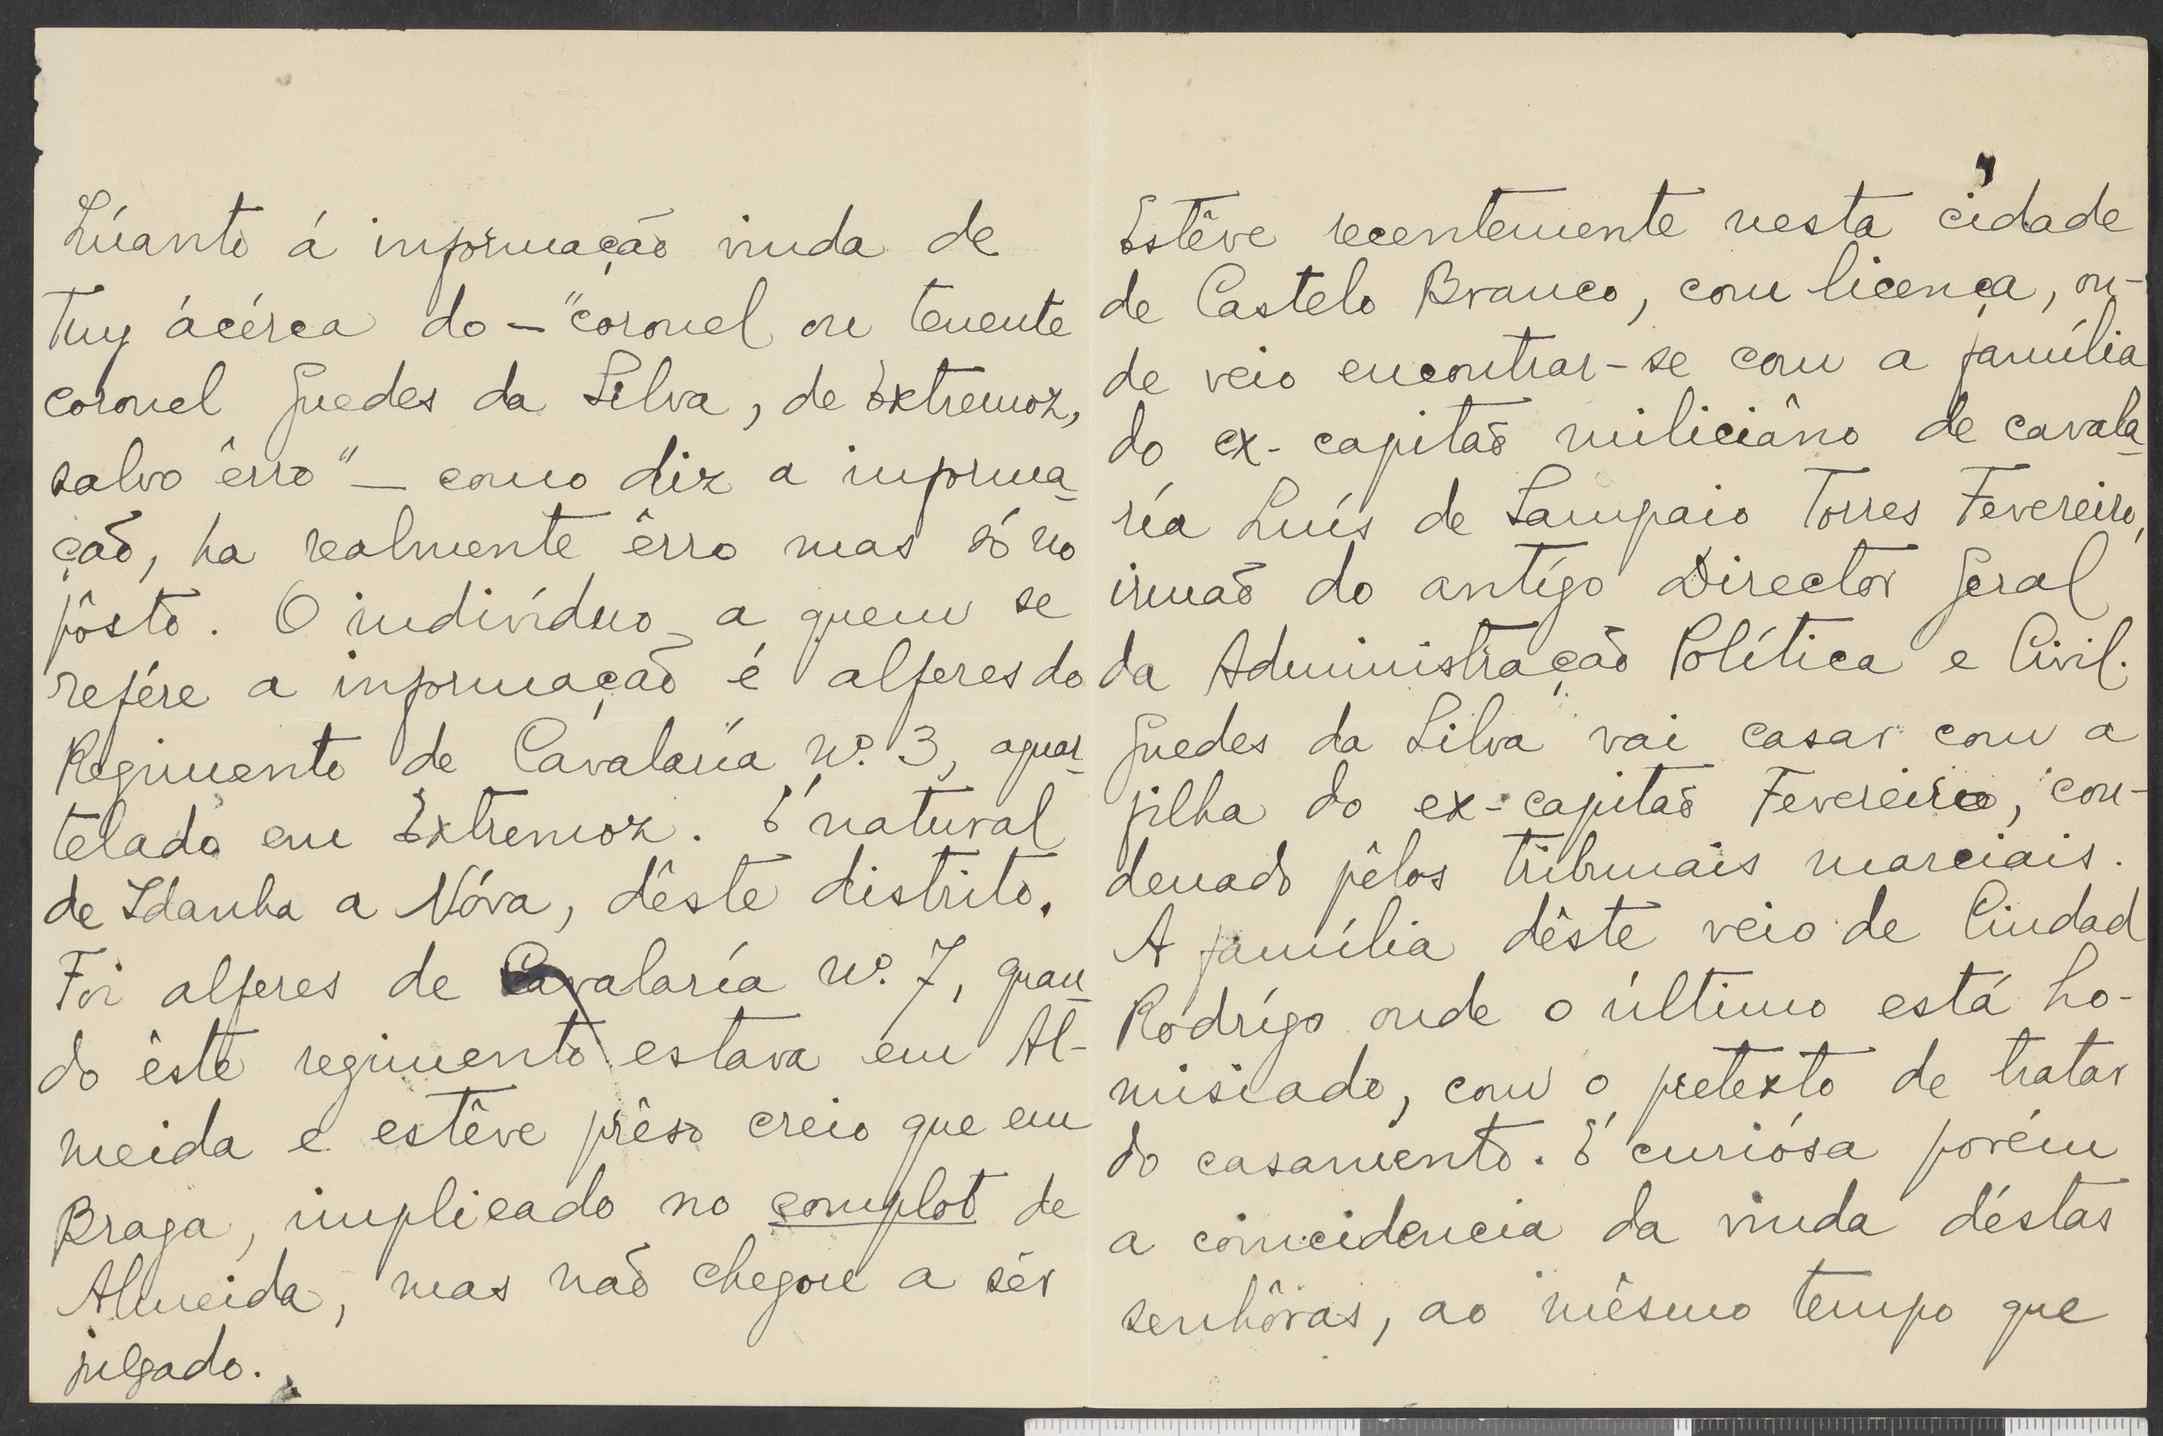 Quanto á informação vinda de
Tuy ácêrca do - "coronel ou tenente
coronel Guedes da Silva, de Extremoz,
salvo êrro" - como diz a informa-
ção, ha realmente êrro mas só no
pôsto. O indivíduo a quem se
refére a informação é alferes do
Regimento de Cavalaría Nº. 3, aquar-
telado em Extremoz. É natural
de Idanha a Nóva, dêste distrito.
Foi alferes de Cavalaría Nº. 7, quan-
do êste regimento estava em Al-
meida e estêve prêso creio que em
Braga, implicado no complot de
Almeida, mas não chegou a sêr
julgado.
Estêve recentemente nesta cidade
de Castelo Branco, com licença, on-
de veio encontrar-se com a família
do ex-capitão miliciâno de cavala-
ría Luís de Sampaio Torres Fevereiro,
irmão do antígo Director Geral
da Administração Política e Civil.
Guedes da Silva vai casar com a
filha do ex-capitão Fevereiro, con-
denado pêlos tribunais marciais.
A família dêste veio de Ciudad
Rodrígo onde o último está ho-
misiado, com o pretexto de tratar
do casamento. É curiósa porém
a coincidencia da vinda déstas
senhôras, ao mêsmo tempo que